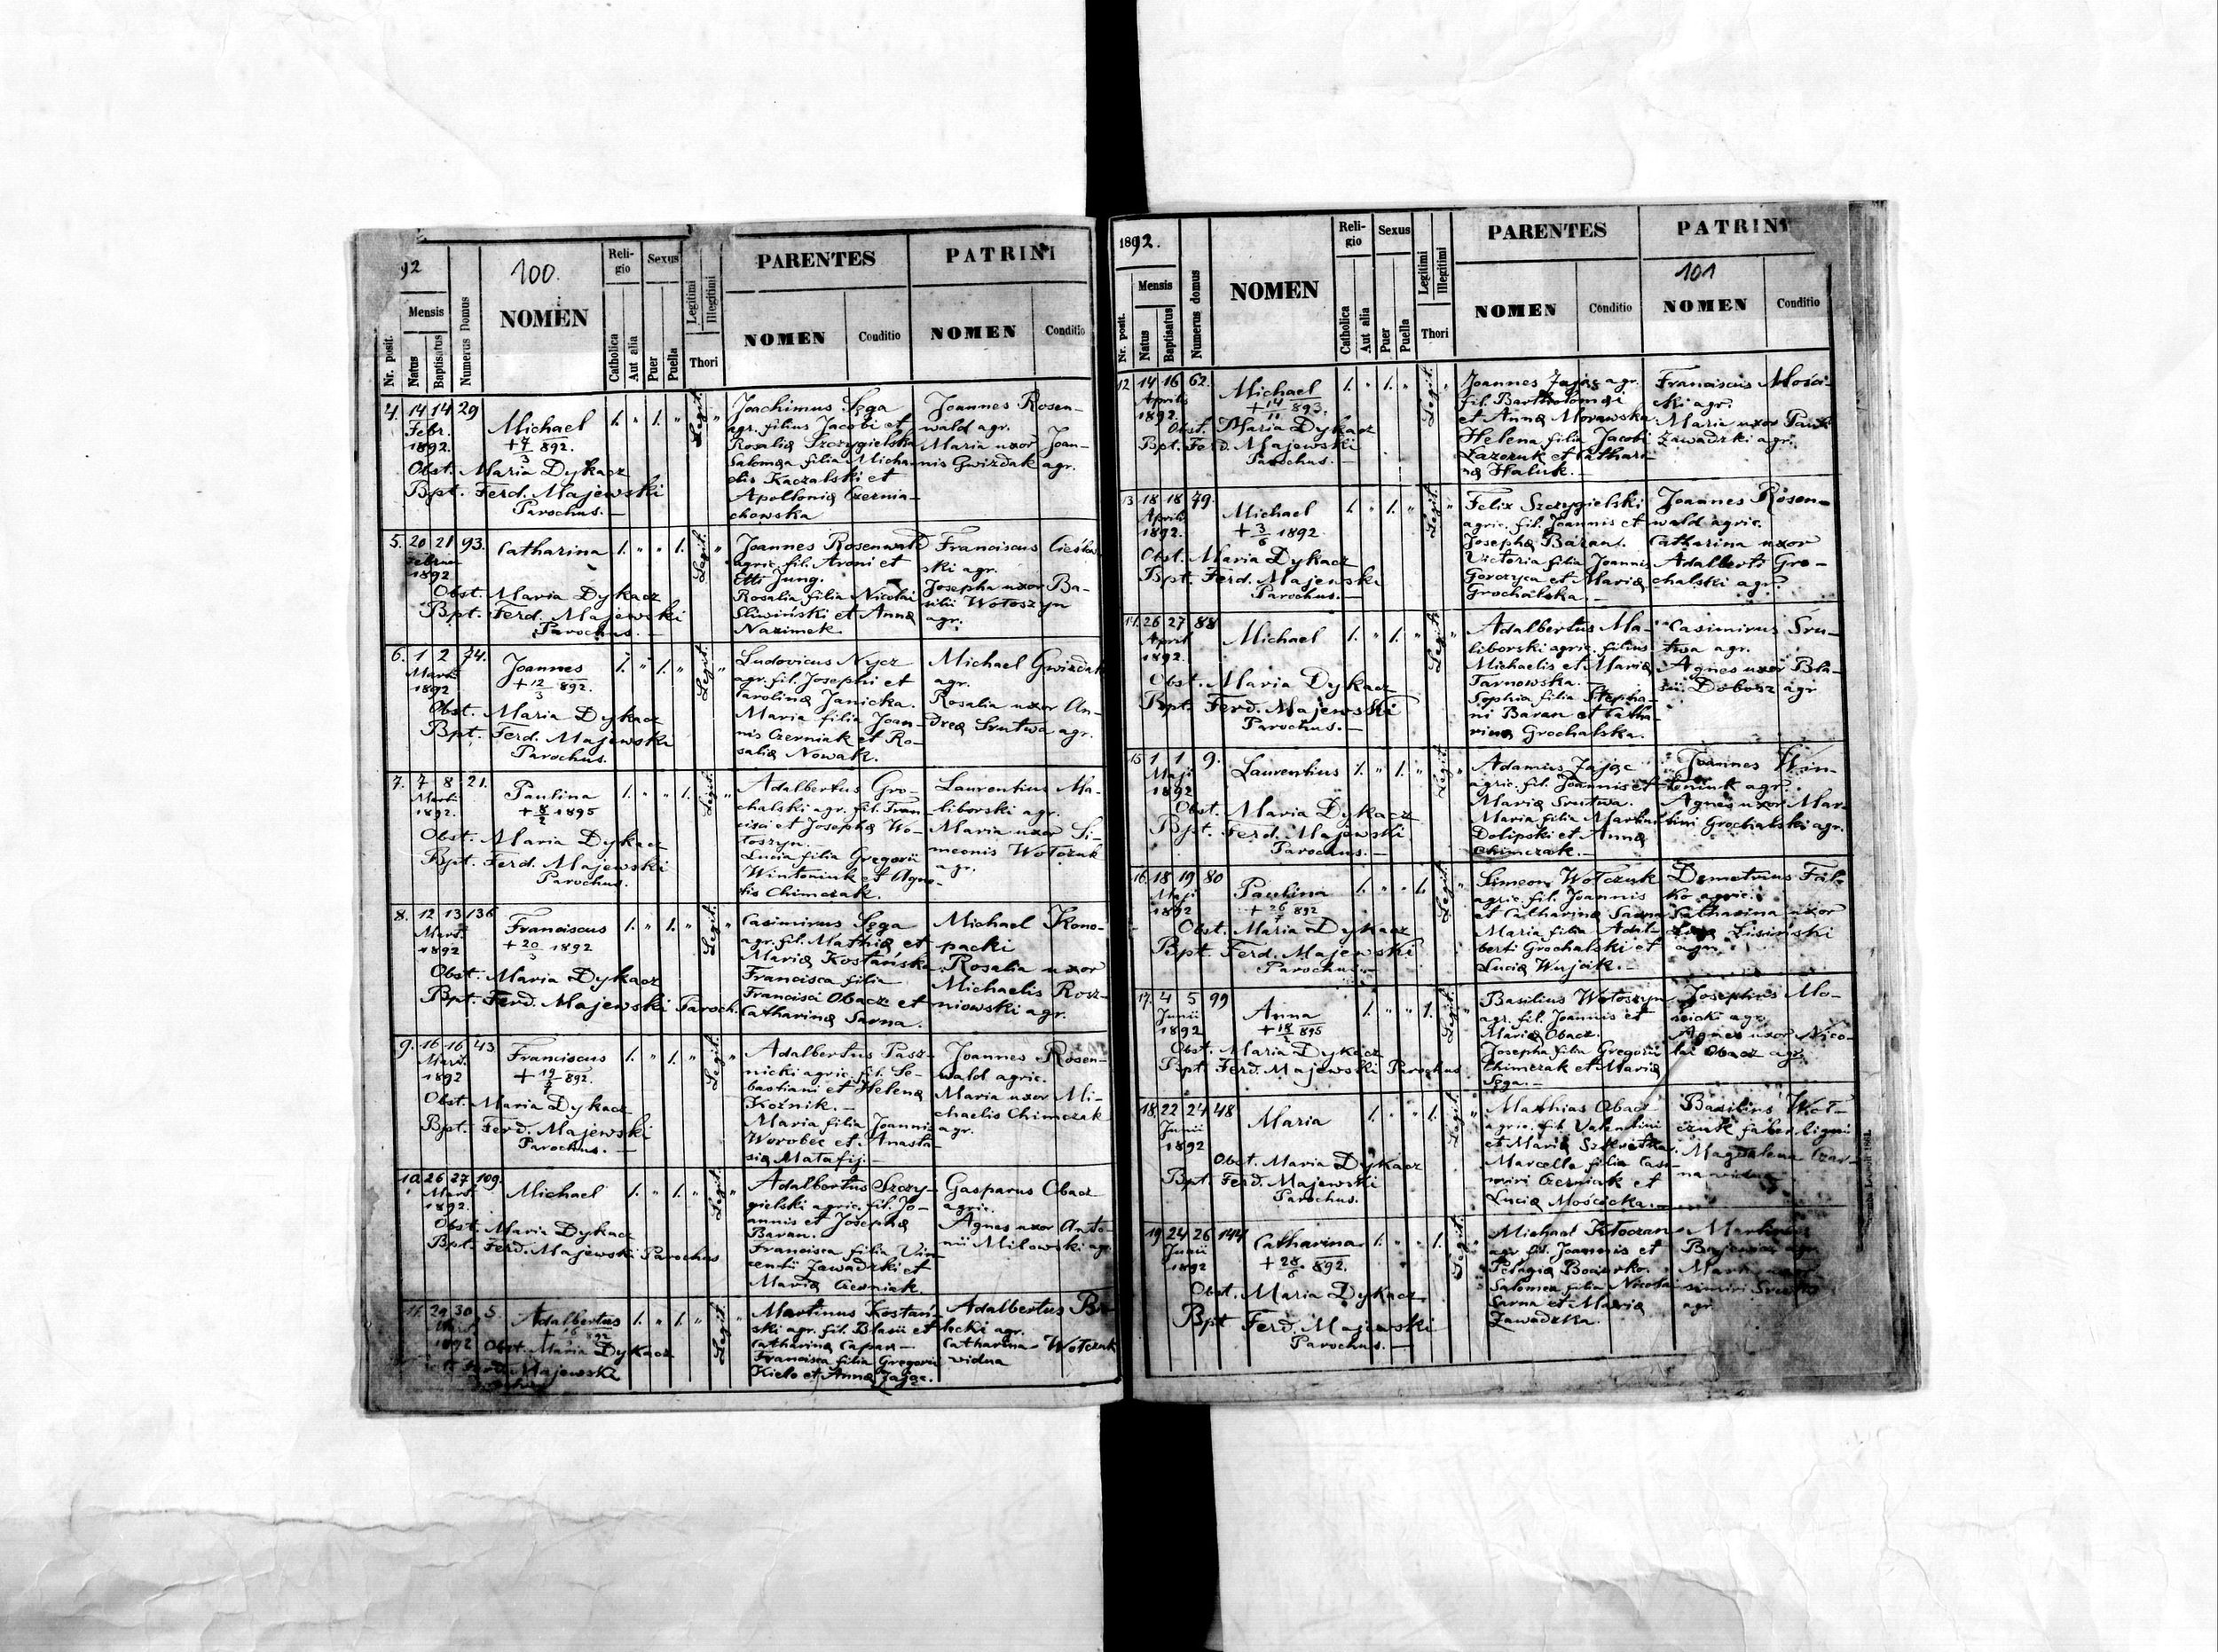 92
100.
Nr. posit.
Mensis
Natus
Baptisatus
Numerus Domus
NOMEN
Religio
Catholica
Aut alia
Sexus
Puer
Puella
Legitimi
Illegitimi
Thori
PARENTES
NOMEN
Conditio
PATRINI
NOMEN
Conditio
4. 14 14 29
Febr.
1892.
Michael
+ 7/3 892.
Obst. Maria Dykacz
Bpt. Ferd. Majewski
Parochus. —
1. " 1. "
Legit. "
Joachimus Sęga
agr. filius Jacobi et
Rosaliæ Szczygielska
Salomea filia Micha-
elis Kaczalski et
Apolloniæ Czernia-
chowska
Joannes Rosen-
wald agr.
Maria uxor Joan-
nis Gwizdak agr.
5. 20 21 93.
Februar
1892
Catharina
Obst. Maria Dykacz
Bpt. Ferd. Majewski
Parochus. —
1. " " 1.
Legit. "
Joannes Rosenwald
agric. fil. Aroni et
Etti Jung.
Rosalia filia Nicolai
Sliwiński et Annæ
Nazimek
Franciscus
ski agr.
Josepha uxor Ba-
silii Wołoszyn
agr.
6. 1 2 74.
Martii
1892
Joannes
+ 12/3 892.
Obst. Maria Dykacz
Bpt. Ferd. Majewski
Parochus.
1. " 1. "
Legit. "
Ludovicus Nycz
agr. fil. Josephi et
Carolinæ Janicka.
Maria filia Joan-
nis Czerniak et Ro-
saliæ Nowak.
Michael Gwizdak
agr.
Rosalia uxor An-
dreæ Srutwa agr.
7. 7 8 21.
Martii
1892.
Paulina
+ 8/2 1895
Obst. Maria Dykacz
Bpt. Ferd. Majewski
Parochus.
1. " " 1.
Legit. "
Adalbertus Gro-
chalski agr. fil. Fran-
cisci et Josephæ Wo-
łoszyn. —
Lucia filia Gregorii
Wintoniuk et Agne-
tis Chimczak.
Laurentius Ma-
liborski agr.
Maria uxor Si-
meonis Wołczuk
agr.
8. 12 13 136
Mart.
1892
Franciscus
+ 20/3 1892
Obst. Maria Dykacz
Bpt. Ferd. Majewski Paroch.
1. " 1. "
Legit. "
Casimirus Sęga
agr. fil. Mathiæ et
Mariæ Kostańska
Francisca filia
Francisci Obacz et
Catharinæ Sarna.
Michael Kono-
packi
Rosalia uxor
Michaelis Rosz-
niowski agr.
9. 16 16 43
Mart.
1892
Franciscus
Obst. Maria Dykacz
Bpt. Ferd. Majewski
Parochus. —
1. " 1. "
Legit. "
Adalbertus Pasz-
nicki agric. fil. Se-
bastiani et Helenæ
Koźnik. —
Maria filia Joannis
Worobec et Anasta-
siæ Matafij. —
Joannes Rosen-
wald agric.
Maria uxor Mi-
chaelis Chimczak
agr.
10. 26 27 109.
Mart.
1892.
Michael
Obst. Maria Dykacz
Bpt. Ferd. Majewski Parochus
1. " 1. "
Legit. "
Adalbertus Szczy-
gielski agric. fil. Jo-
annis et Josephæ
Baran.
Francisca filia Vin-
centii Zawadzki et
Mariæ Czerniak.
Gasparus Obacz
agric.
Agnes uxor Anto-
nii Milowski agr.
11. 29 30 5.
1892
Adalbertus
Obst. Maria Dykacz
Majewski
1. " 1. "
Legit. "
Martinus Kostań-
ski agr. fil. Blasii et
Catharinæ Capar —
Francisca filia Gregorii
Kielo et Annæ Zając.
Adalbertus
agr.
Catharina Wołczuk
vidua
1892.
101
Nr. posit.
Mensis
Natus
Baptisatus
Numerus domus
NOMEN
Religio
Catholica
Aut alia
Sexus
Puer
Puella
Legitimi
Illegitimi
Thori
PARENTES
NOMEN
Conditio
PATRINI
NOMEN
Conditio
12 14 16 62.
Aprilis
1892.
Michael
+ 14/11 893.
Obst. Maria Dykacz
Bpt. Ferd. Majewski
Parochus. —
1. " 1. "
Legit. "
Joannes Zając agr.
fil. Bartholomæi
et Annæ Morawska
Helena filia Jacobi
Łazoruk et Cathari-
næ Hałuk. —
Franciscus Mości-
cki agr.
Maria uxor Pauli
Zawadzki agr.
13 18 18 79.
Aprilis
1892.
Michael
+ 3/6 1892.
Obst. Maria Dykacz
Bpt. Ferd. Majewski
Parochus. —
1. " 1. "
Legit. "
Felix Szczygielski
agric. fil. Joannis et
Josephæ Baran.
Victoria filia Joannis
Gorczyca et Mariæ
Grochalska. —
Joannes Rosen-
wald agric.
Catharina uxor
Adalberti Gro-
chalski agr.
14. 26 27 88
April
1892.
Michael
Obst. Maria Dykacz
Bpt. Ferd. Majewski
Parochus. —
1. " 1. "
Legit. "
Adalbertus Ma-
liborski agric. filius
Michaelis et Mariæ
Tarnowska. —
Sophia filia Stepha-
ni Baran et Catha-
rinæ Grochalska.
Casimirus Sru-
twa agr.
Agnes uxor Bla-
sii Dobosz agr
15 1 1 9.
Maji
1892
Laurentius
Obst. Maria Dykacz
Bpt. Ferd. Majewski
Parochus. —
1. " 1. "
Legit. "
Adamus Zając
agric. fil. Joannis et
Mariæ Srutwa.
Maria filia Martini
Dolipski et Annæ
Chimczak. —
Joannes Win-
toniuk agr.
Agnes uxor Mar-
tini Grochalski agr.
16. 18 19 80
Maji
1892
Paulina
+ 26/7 892
Obst. Maria Dykacz
Bpt. Ferd. Majewski
Parochus. —
1. " " 1.
Legit. "
Simeon Wołczuk
agric. fil. Joannis
et Catharinæ Sarna
Maria filia Adal-
berti Grochalski et
Luciæ Wujcik. —
Demetrius Fal-
ko agric.
Catharina uxor
agr.
17. 4 5 99
Junii
1892
Anna
Obst. Maria Dykacz
Bpt. Ferd. Majewski Parochus
1. " " 1.
Legit. "
Basilius Wołoszyn
agr. fil. Joannis et
Mariæ Obacz.
Josepha filia Gregorii
Chimczak et Mariæ
Sęga. —
Josephus Mo-
ścicki agr.
Agnes uxor Nico-
lai Obacz agr.
18. 22 24 48
Junii
1892
Maria
Obst. Maria Dykacz
Bpt. Ferd. Majewski
Parochus.
1. " " 1.
Legit. "
Mathias Obacz
agric. fil. Valentini
et Mariæ
Marcella filia Casi-
miri Czerniak et
Luciæ Mościcka. —
Basilius Woł-
czuk faber ligni
Magdalena
vidua
19 24 26 144
Junii
1892
Catharina
+ 28/6 892.
Obst. Maria Dykacz
Bpt Ferd. Majewski
Parochus. —
1. " " 1.
Legit. "
Michael Kłoczan
agr. fil. Joannis et
Pelagiæ Bociurko.
Salomea filia Nicolai
Sarna et Mariæ
Zawadzka.
Martinus
agr.
agr.